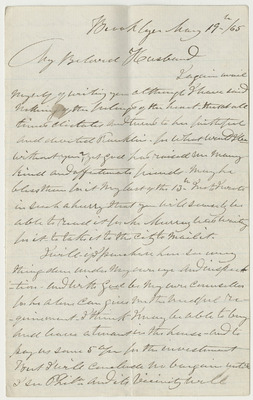 Brooklyn May 19th /65
My Beloved Husband
I again avail
myself of writing you although I have said
nothing the feelings of this heart that at all
times dictates and turns to her faithful
and devoted Franklin for what would I be
without you yet God has raised me many
kind and affectionate friends May he
bless them for it My last of the 13th Inst I wrote
in such a hurry that you will scarcely be
able to read it for Mr Murray was waiting
for it to take it to the City to mail it
I will
things then under my own eye and inspec
tion and with God be my own counsellor
for he alone can give me the needful re
quirement I think I may be able to buy
and leave a tenant in the house and to
pay us some 5 per for the investment
But I will conclude no bargain until
I see Phila and its vicinity well